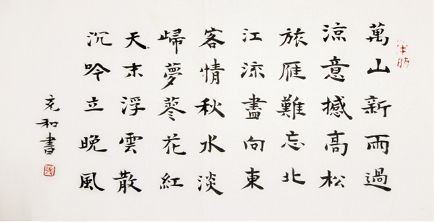 萬山新雨過
涼意撼高松
旅雁難忘北
江流盡向東
客情秋水淡
歸夢蓼花紅
天末浮雲散
沉吟立晚風
充和書